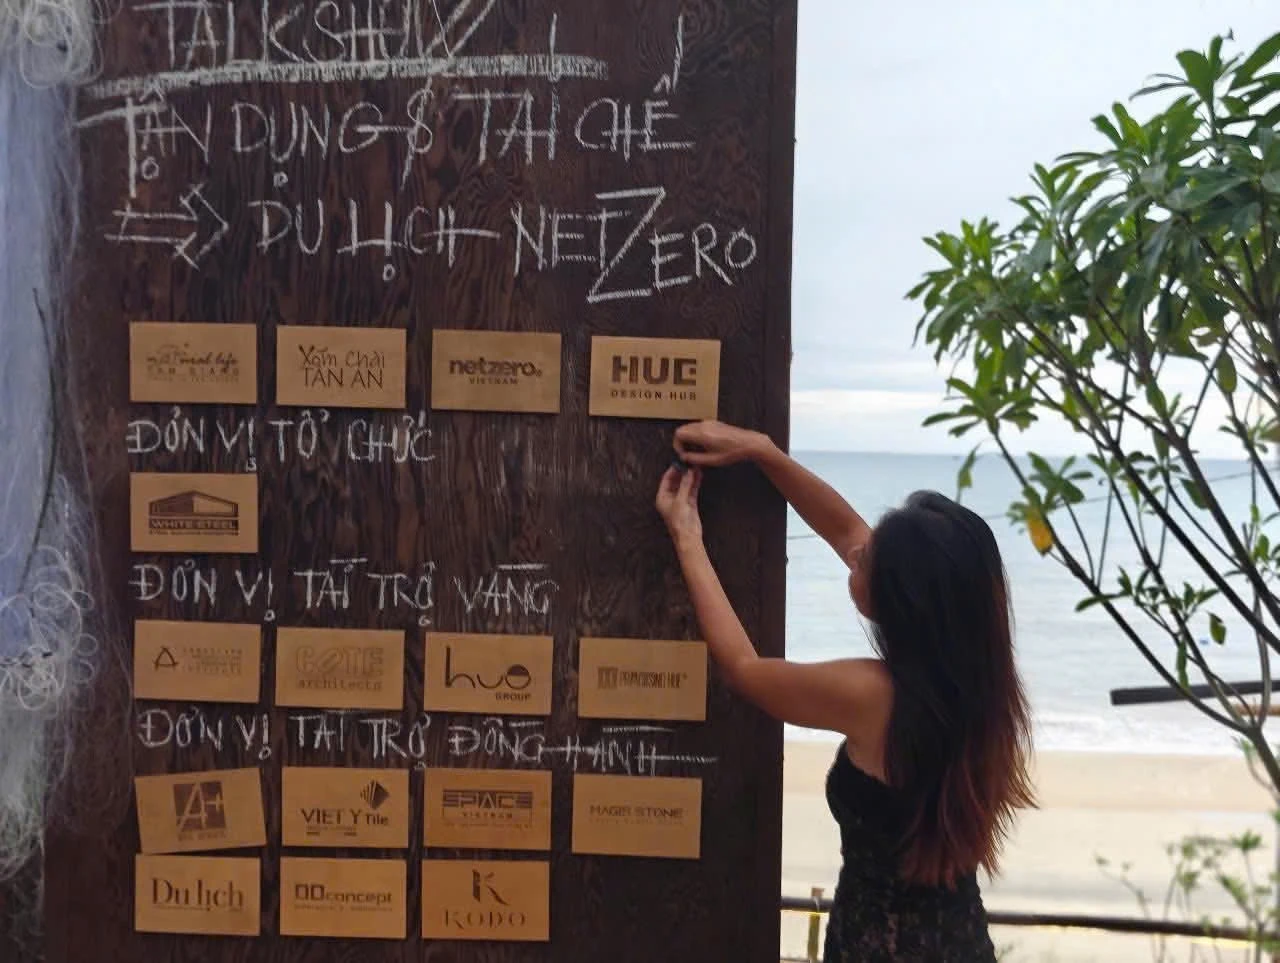 TALKSHOW
TẬN DỤNG & TÁI CHẾ
=> DU LỊCH NETZERO
natural life
TAM GIANG
Xóm Chài
TÂN AN
netzero.
VIETNAM
HUE
DESIGN HUB
ĐƠN VỊ TỔ CHỨC
WHITE STEEL
ĐƠN VỊ TÀI TRỢ VÀNG
LANDSCAPE
COTE
architects
hue
GROUP
ĐƠN VỊ TÀI TRỢ ĐỒNG HÀNH
A+
VIET Y Tile
SPACE
VIETNAM
MAGIE STONE
Du lịch
concept
K
KODO